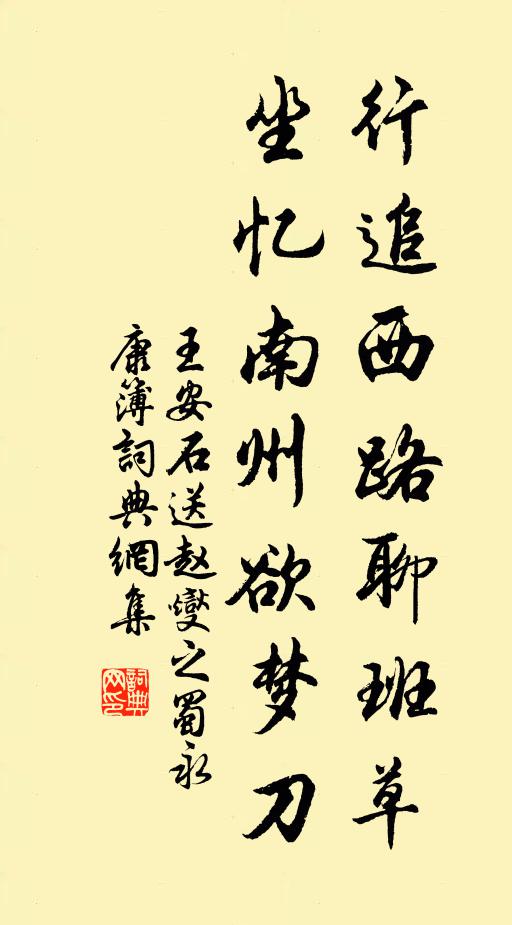 行追西路聊班草
坐忆南州欲梦刀
王安石送赵燮之蜀永
康簿詞典網集
詞典
网印